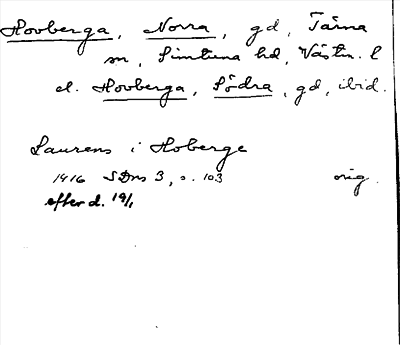 Hovberga, Norra, gd, Tärna
sn, Simtuna hd, Västm. l
el. Hovberga, Södra, gd, ibid.
Laurens i Hoberge
1416 SDns 3, s. 103 orig.
efter d. 19/1